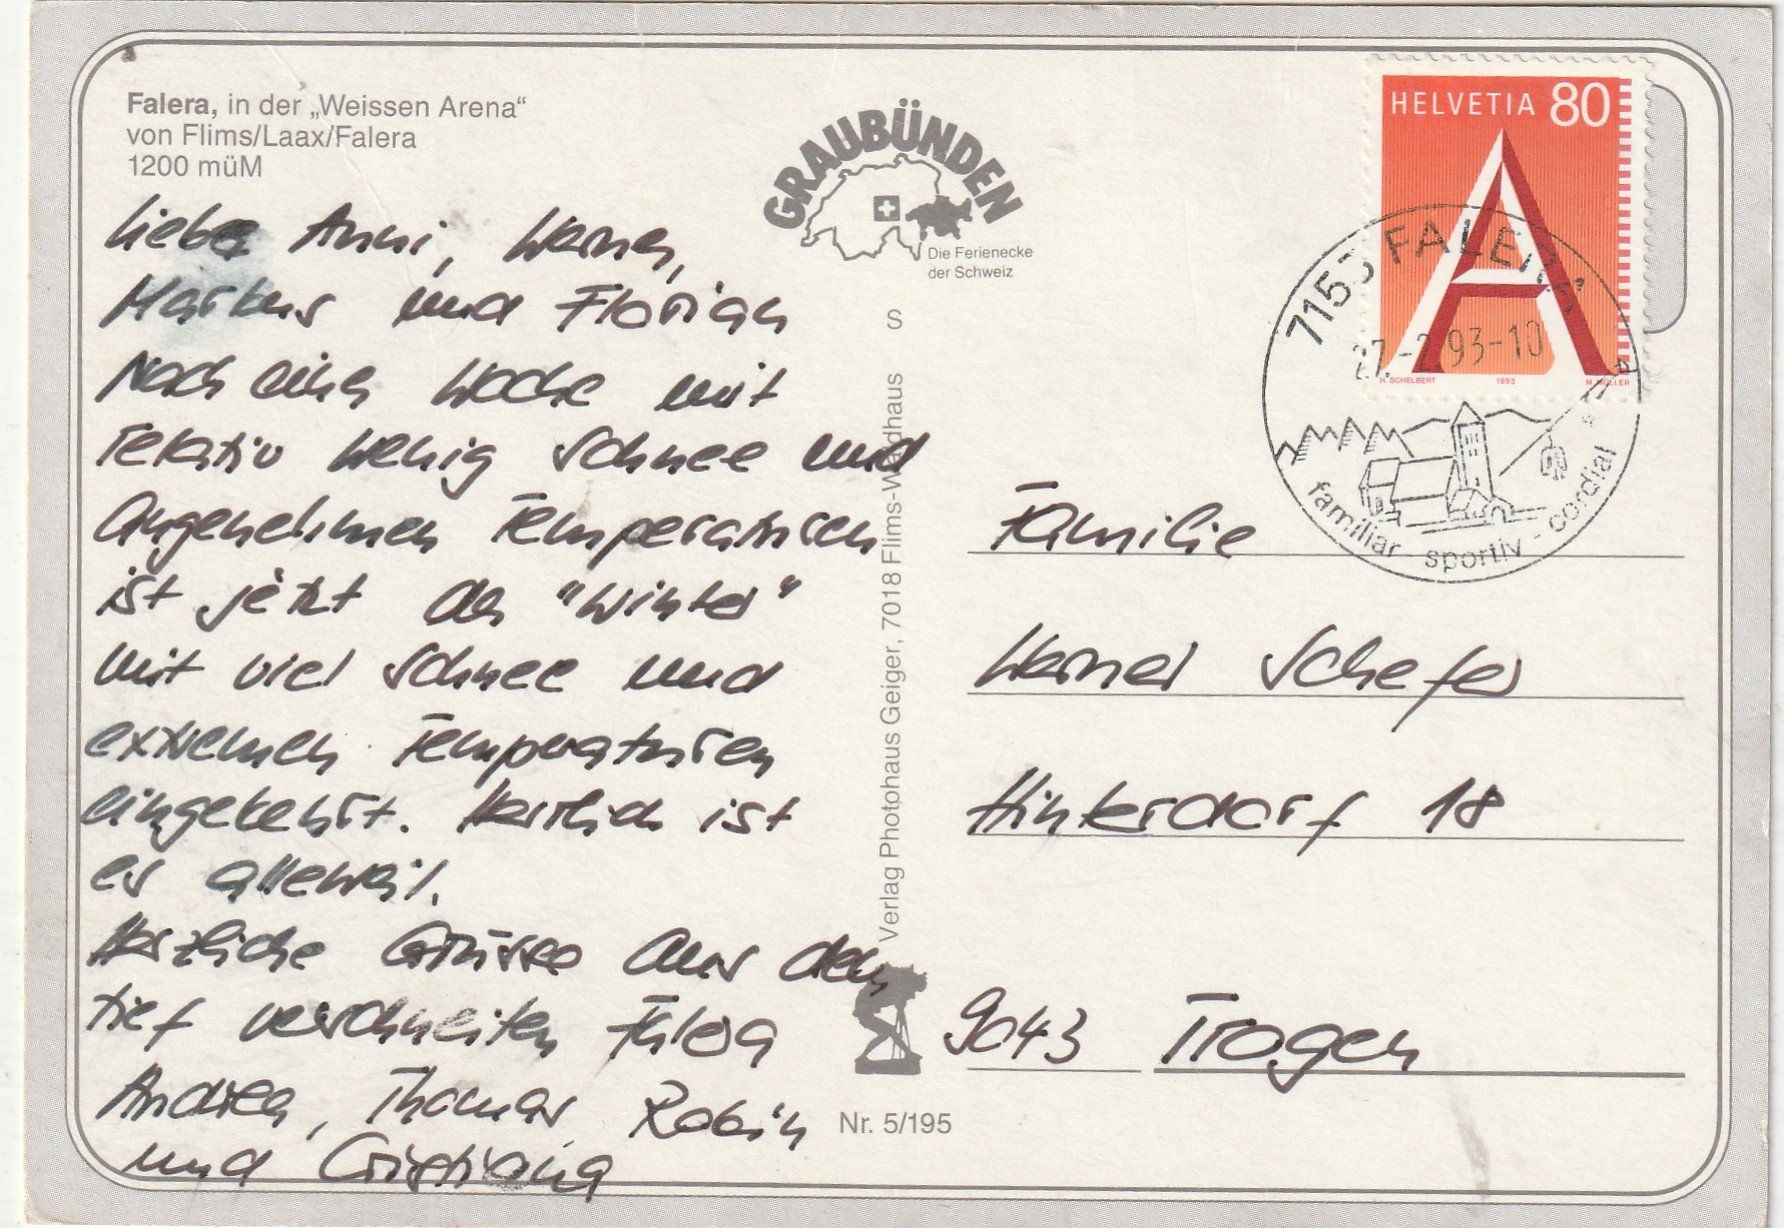 Falera, in der „Weissen Arena“
von Flims/Laax/Falera
1200 müM
GRAUBÜNDEN
Die Ferienecke
der Schweiz
HELVETIA 80
H. SCHELBERT 1993 M. MÜLLER
7153 FALERA
27.-2.93-10
familiar - sportiv - cordial
Liebe Anni, Werner,
Markus und Florian
Nach einer Woche mit
relativ wenig Schnee und
angenehmen Temperaturen
ist jetzt der "Winter"
mit viel Schnee und
extremen Temperaturen
eingekehrt. Herrlich ist
es alleweil.
Herzliche Grüsse aus dem
tief verschneiten Falera
Andrea, Thomas, Robin
und Cristiana
Verlag Photohaus Geiger, 7018 Flims-Waldhaus S
Nr. 5/195
Familie
Werner Schefer
Hinterdorf 18
9043 Trogen